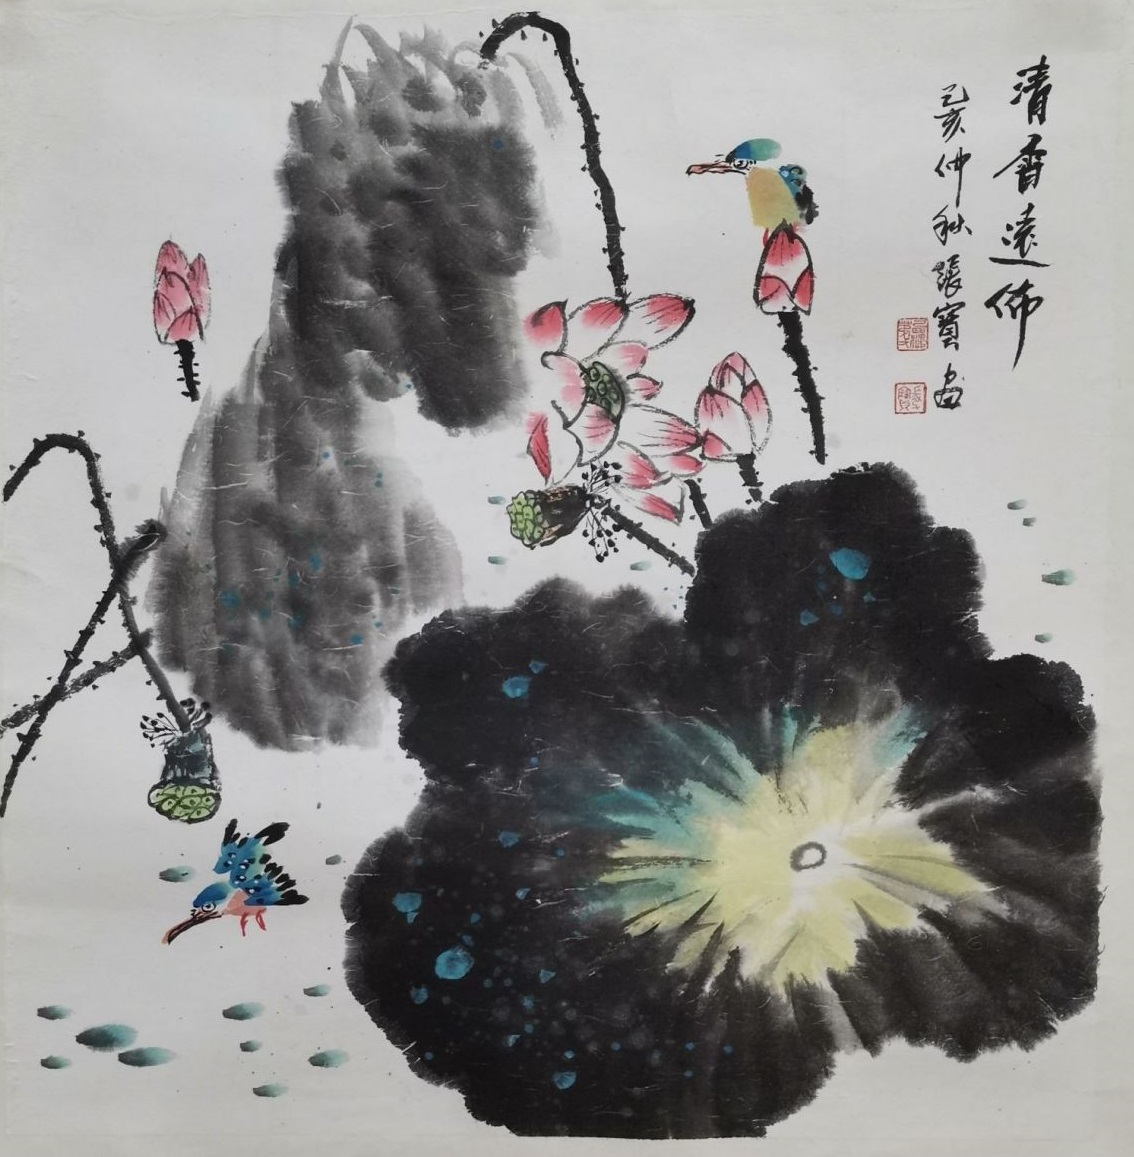 清香遠佈
己亥仲秋張寶畫